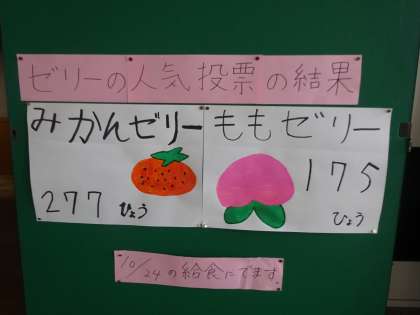 ゼリーの人気投票の結果
みかんゼリー
277 ひょう
ももゼリー
175
ひょう
10/24の給食にでます